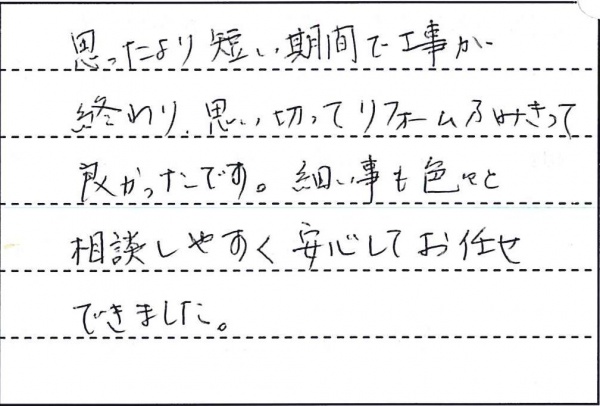 思ったより短い期間で工事が
終わり、思い切ってリフォームふみきって
良かったです。細い事も色々と
相談しやすく安心してお任せ
できました。